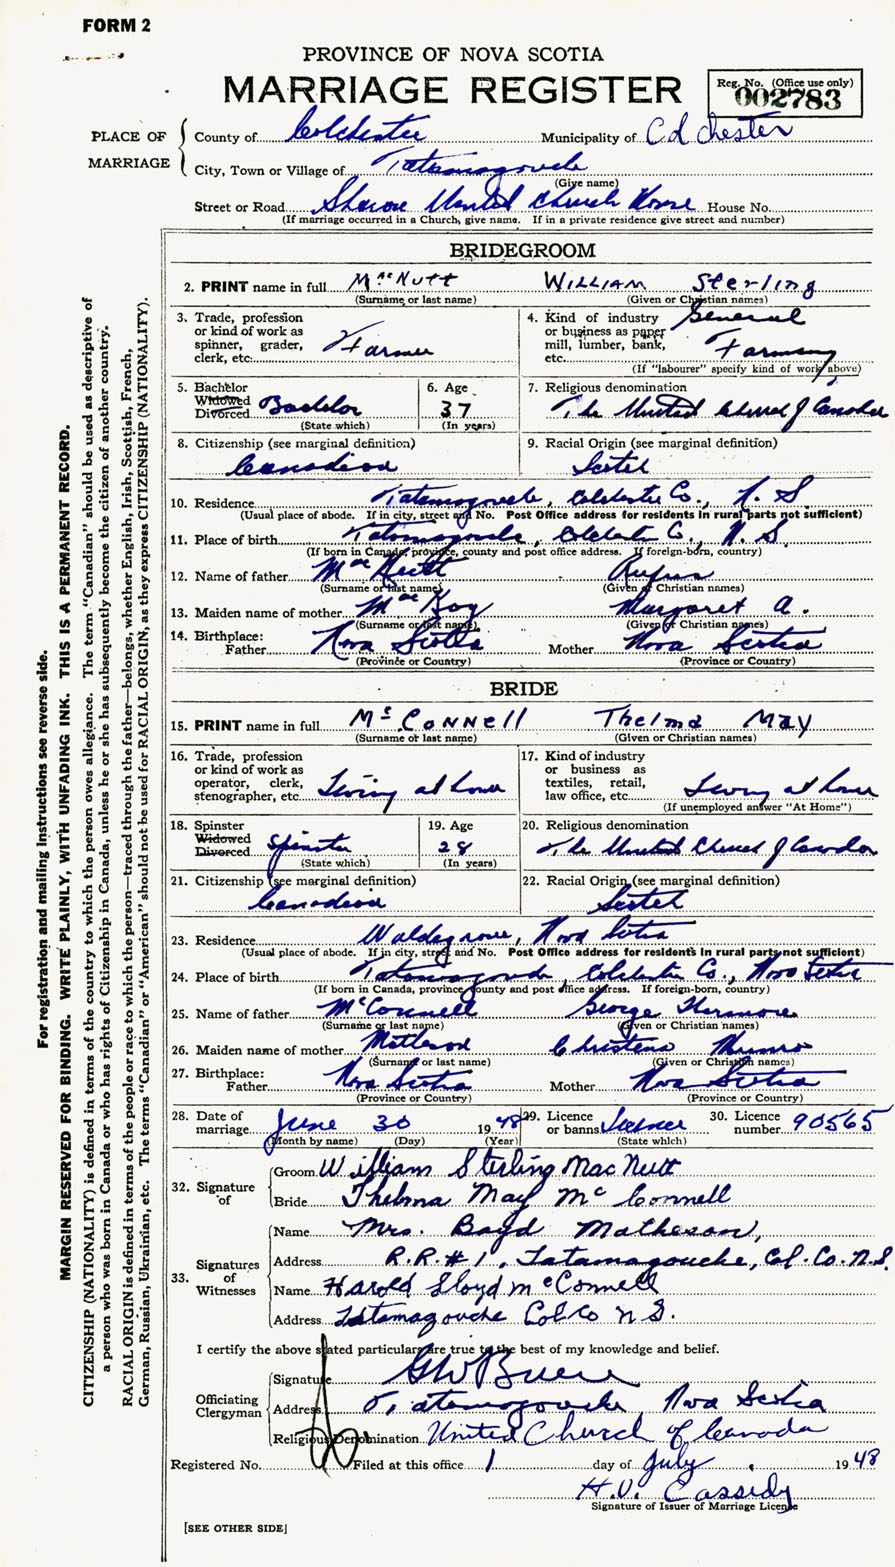 FORM 2
PROVINCE OF NOVA SCOTIA
MARRIAGE REGISTER
Reg. No. (Office use only)
002783
PLACE OF MARRIAGE
County of Colchester Municipality of Colchester
City, Town or Village of Tatamagouche
(Give name)
Street or Road Sharon United Church House No.
(If marriage occurred in a Church, give name. If in a private residence give street and number)
BRIDEGROOM
2. PRINT name in full MacNutt William Sterling
(Surname or last name) (Given or Christian names)
3. Trade, profession or kind of work as spinner, grader, clerk, etc. Farmer
4. Kind of industry or business as paper mill, lumber, bank, etc. General Farming
(If "labourer" specify kind of work above)
5. Bachelor Widowed Divorced Bachelor
(State which)
6. Age 37
(In years)
7. Religious denomination
The United Church of Canada
8. Citizenship (see marginal definition)
Canadian
9. Racial Origin (see marginal definition)
Scotch
10. Residence Tatamagouche, Colchester Co., N. S.
(Usual place of abode. If in city, street and No. Post Office address for residents in rural parts not sufficient)
11. Place of birth Tatamagouche, Colchester Co., N. S.
(If born in Canada, province, county and post office address. If foreign-born, country)
12. Name of father MacNutt Rufus
(Surname or last name) (Given or Christian names)
13. Maiden name of mother MacKay Margaret A.
(Surname or last name) (Given or Christian names)
14. Birthplace:
Father Nova Scotia Mother Nova Scotia
(Province or Country) (Province or Country)
BRIDE
15. PRINT name in full McConnell Thelma May
(Surname or last name) (Given or Christian names)
16. Trade, profession or kind of work as operator, clerk, stenographer, etc. Living at home
17. Kind of industry or business as textiles, retail, law office, etc. Living at home
(If unemployed answer "At Home")
18. Spinster Widowed Divorced Spinster
(State which)
19. Age 28
(In years)
20. Religious denomination
The United Church of Canada
21. Citizenship (see marginal definition)
Canadian
22. Racial Origin (see marginal definition)
Scotch
23. Residence Waldegrave, Nova Scotia
(Usual place of abode. If in city, street and No. Post Office address for residents in rural parts not sufficient)
24. Place of birth Tatamagouche, Colchester Co., Nova Scotia
(If born in Canada, province, county and post office address. If foreign-born, country)
25. Name of father McConnell George
(Surname or last name) (Given or Christian names)
26. Maiden name of mother Christena Munro
(Surname or last name) (Given or Christian names)
27. Birthplace:
Father Nova Scotia Mother Nova Scotia
(Province or Country) (Province or Country)
28. Date of marriage June 30 1948
(Month by name) (Day) (Year)
29. Licence or banns License
(State which)
30. Licence number 90565
32. Signature of
Groom William Sterling MacNutt
Bride Thelma May McConnell
33. Signatures of Witnesses
Name Mrs. Boyd Matheson,
Address R.R.#1, Tatamagouche, Col. Co. N.S.
Name Harold Lloyd McConnell
Address Tatamagouche Col Co N S.
I certify the above stated particulars are true to the best of my knowledge and belief.
Officiating Clergyman
Signature
Address Tatamagouche Nova Scotia
Religious Denomination United Church of Canada
Registered No. Filed at this office 1 day of July, 1948
H.V. Cassidy
Signature of Issuer of Marriage License
[SEE OTHER SIDE]
For registration and mailing instructions see reverse side.
MARGIN RESERVED FOR BINDING. WRITE PLAINLY, WITH UNFADING INK. THIS IS A PERMANENT RECORD.
CITIZENSHIP (NATIONALITY) is defined in terms of the country to which the person owes allegiance. The term "Canadian" should be used as descriptive of
a person who was born in Canada or who has rights of Citizenship in Canada, unless he or she has subsequently become the citizen of another country.
RACIAL ORIGIN is defined in terms of the people or race to which the person—traced through the father—belongs, whether English, Irish, Scottish, French,
German, Russian, Ukrainian, etc. The terms "Canadian" or "American" should not be used for RACIAL ORIGIN, as they express CITIZENSHIP (NATIONALITY).